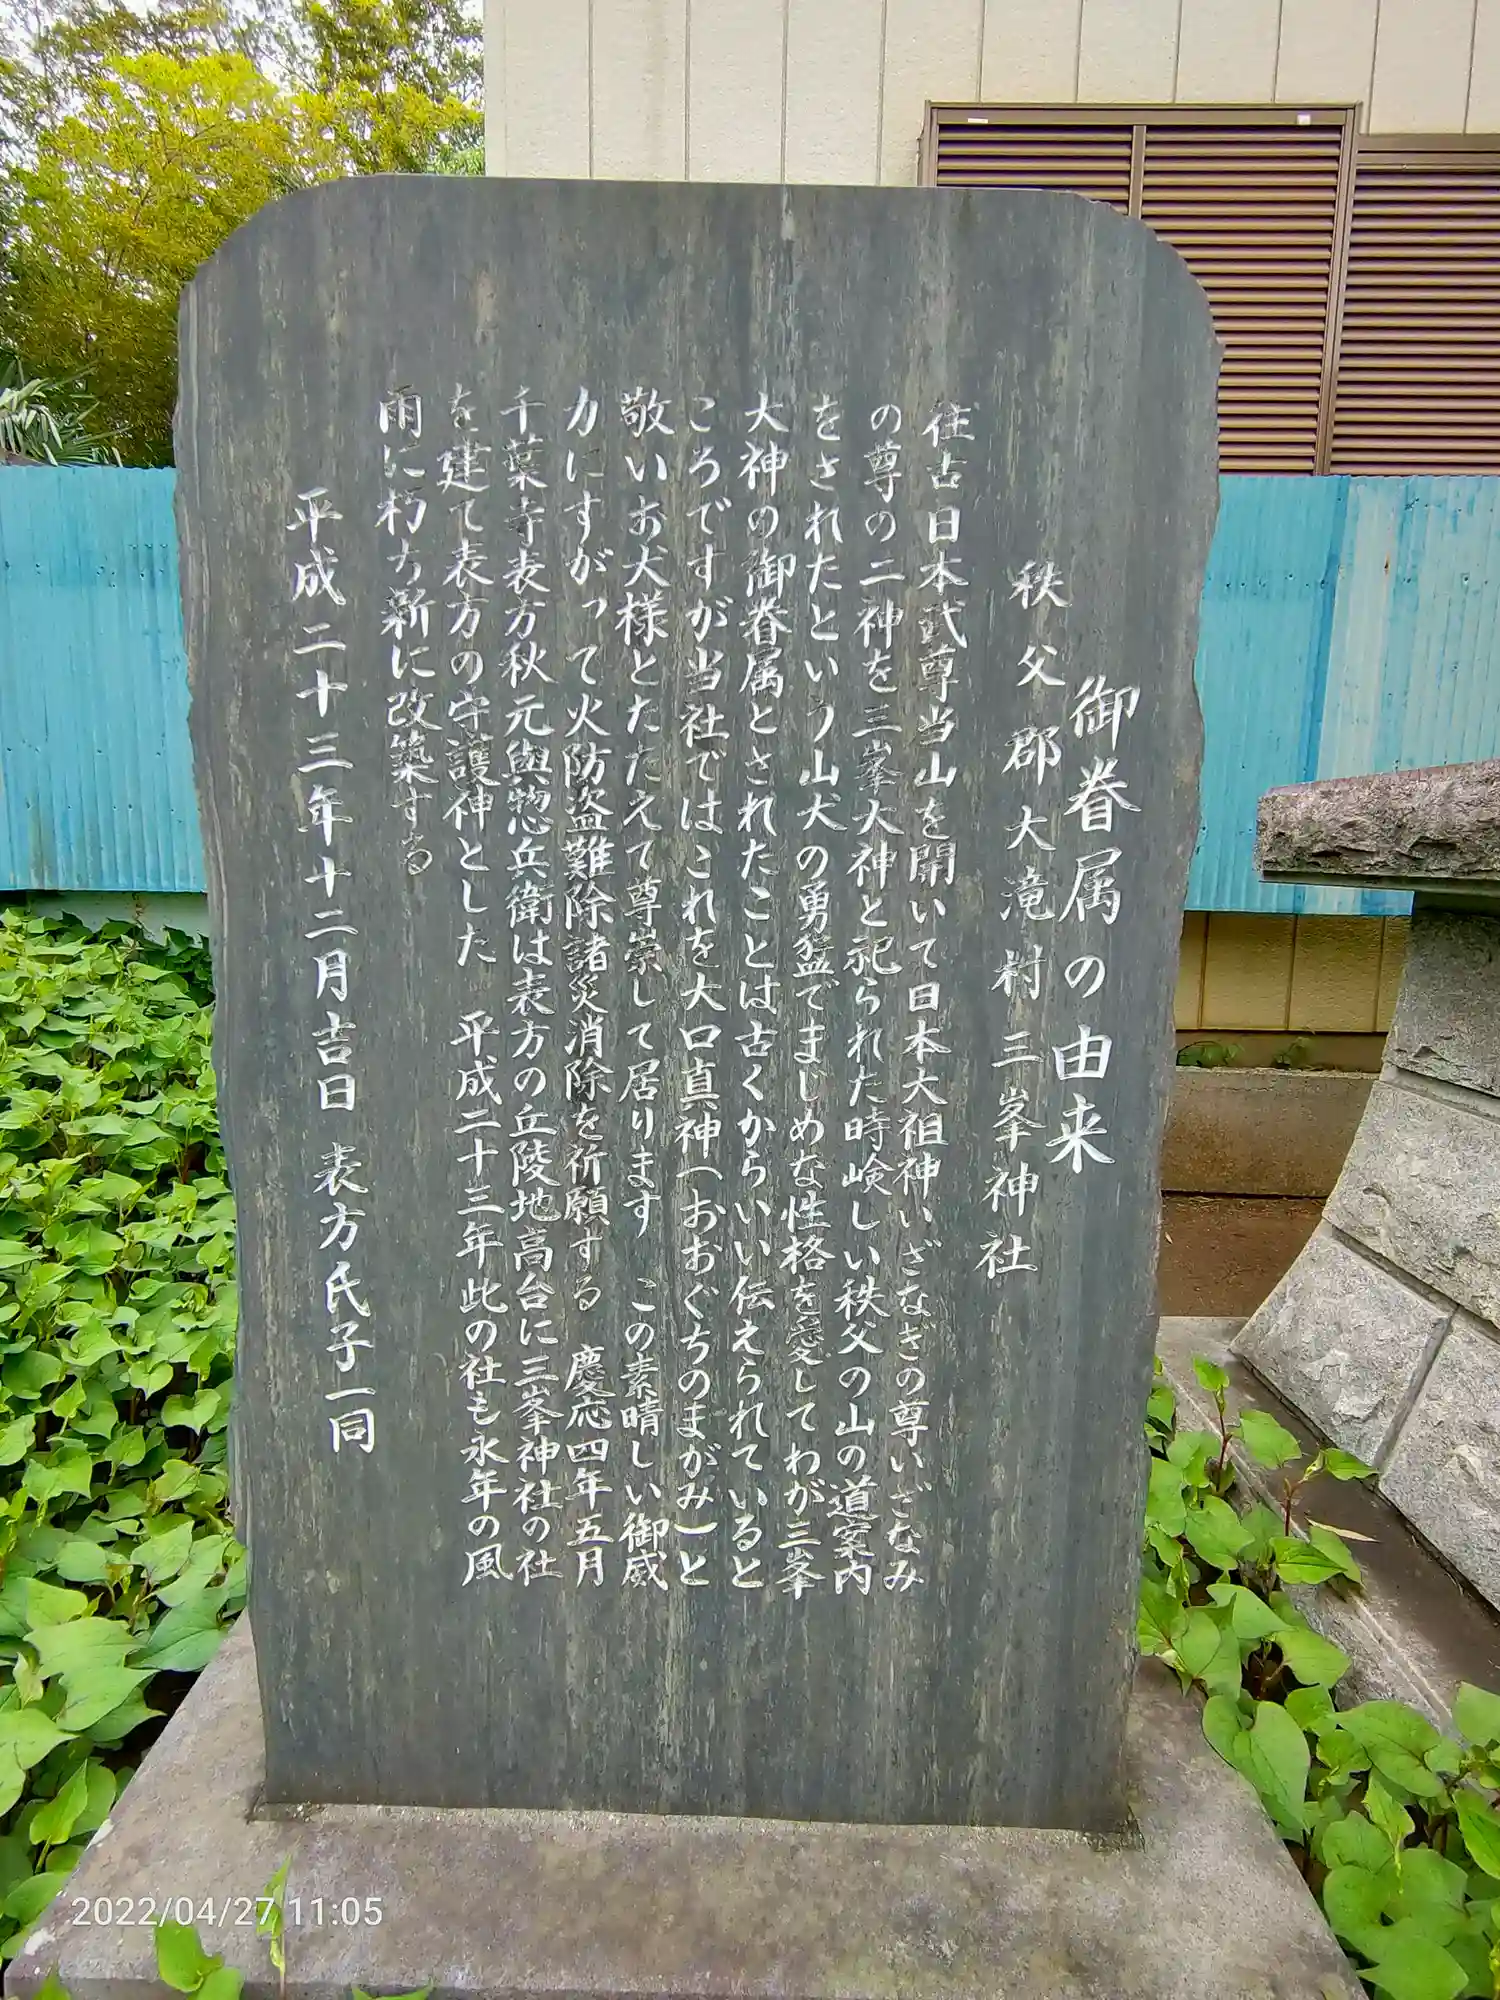 御眷属の由来
秩父郡大滝村三峯神社
往古日本武尊当山を開いて日本大祖神いざなぎの尊いざなみ
の尊の二神を三峯大神と祀られた時嶮しい秩父の山の道案内
をされたという山犬の勇猛でまじめな性格を愛してわが三峯
大神の御眷属とされたことは古くからいい伝えられていると
ころですが当社ではこれを大口真神(おおぐちのまがみ)と
敬いお犬様とたたえて尊崇して居ります この素晴しい御威
力にすがって火防盗難除諸災消除を祈願する 慶応四年五月
千葉寺表方秋元與惣兵衛は表方の丘陵地高台に三峯神社の社
を建て表方の守護神とした 平成二十三年此の社も永年の風
雨に朽ち新に改築する
平成二十三年十二月吉日 表方氏子一同
2022/04/27 11:05